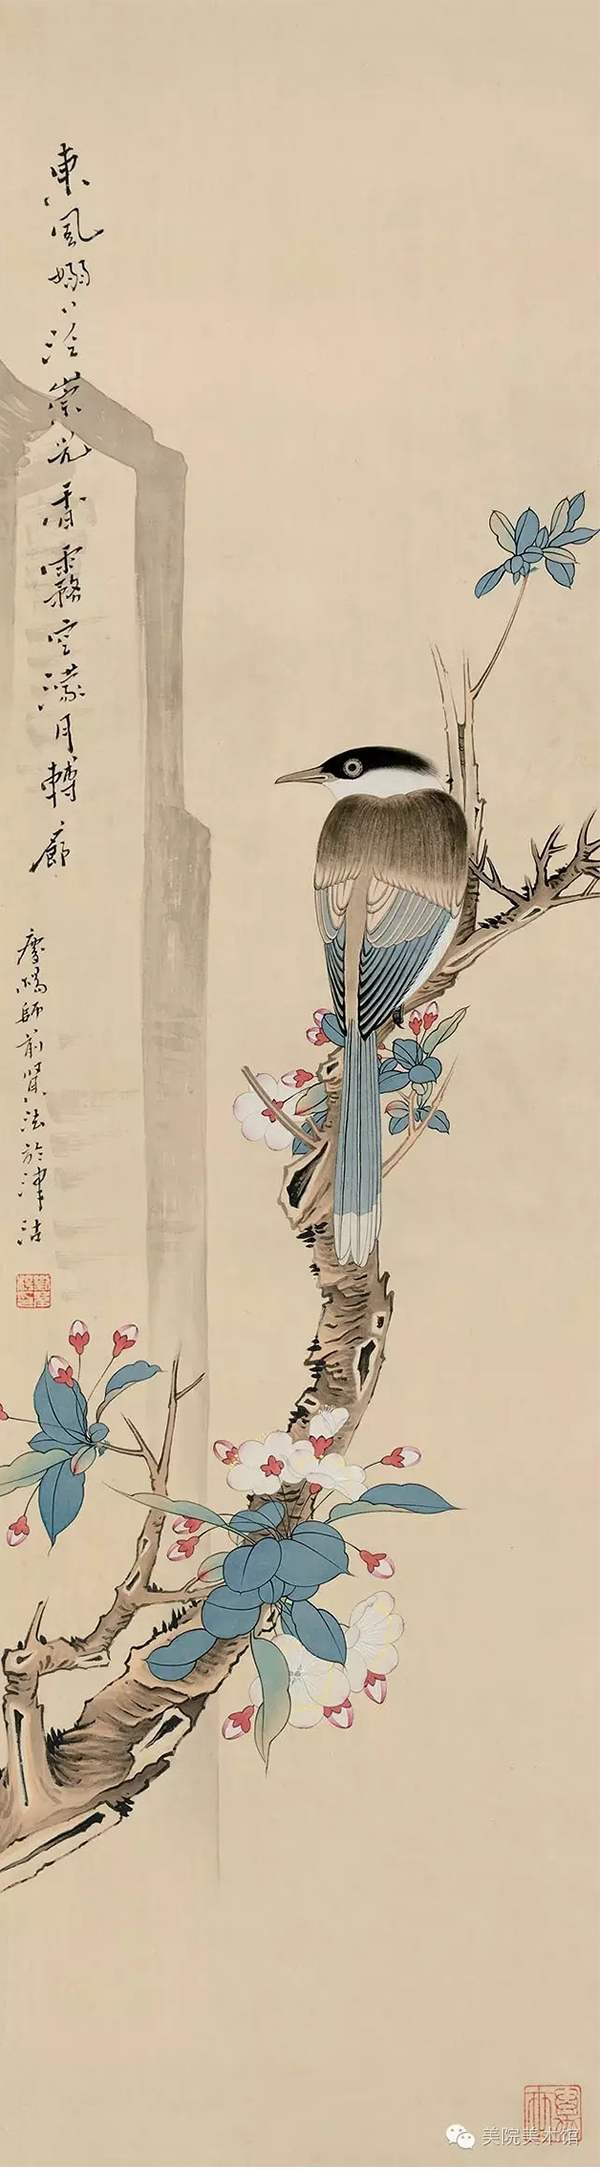 東風嫋〻泛崇光香霧空濛月轉廊
師前賢之法於津沽
美院美术馆